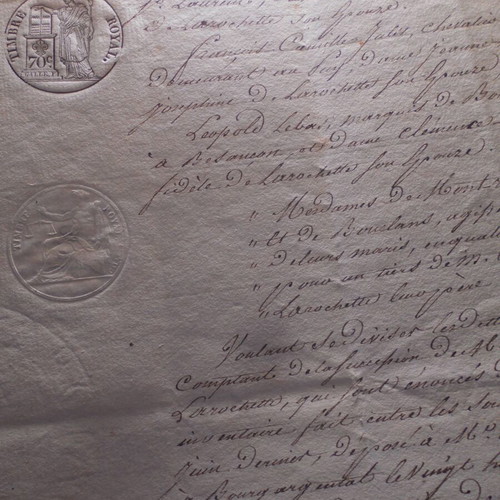 TIMBRE ROYAL
70c
TIMBRE ROYAL
de Larochette son Epouse
françois Camille Jules, chevalier
demeurant au Puy, dame Jeanne
Josephine de Larochette son Epouse
Léopold Lebas, marquis de Bo
à Besancon et dame Clémence
fidèle de Larochette son Epouse.
" Mesdames de Mont
" et de Bouclans, agis
" de leurs maris, en qualité
" pour un tiers de M.
" Larochette leur père
Voulant se diviser les dett
Comptant de la succession de M
Larochette, qui sont énoncés d
inventaire fait entre les So
juin dernier, déposé à Me
à Bourg argental le vingt h